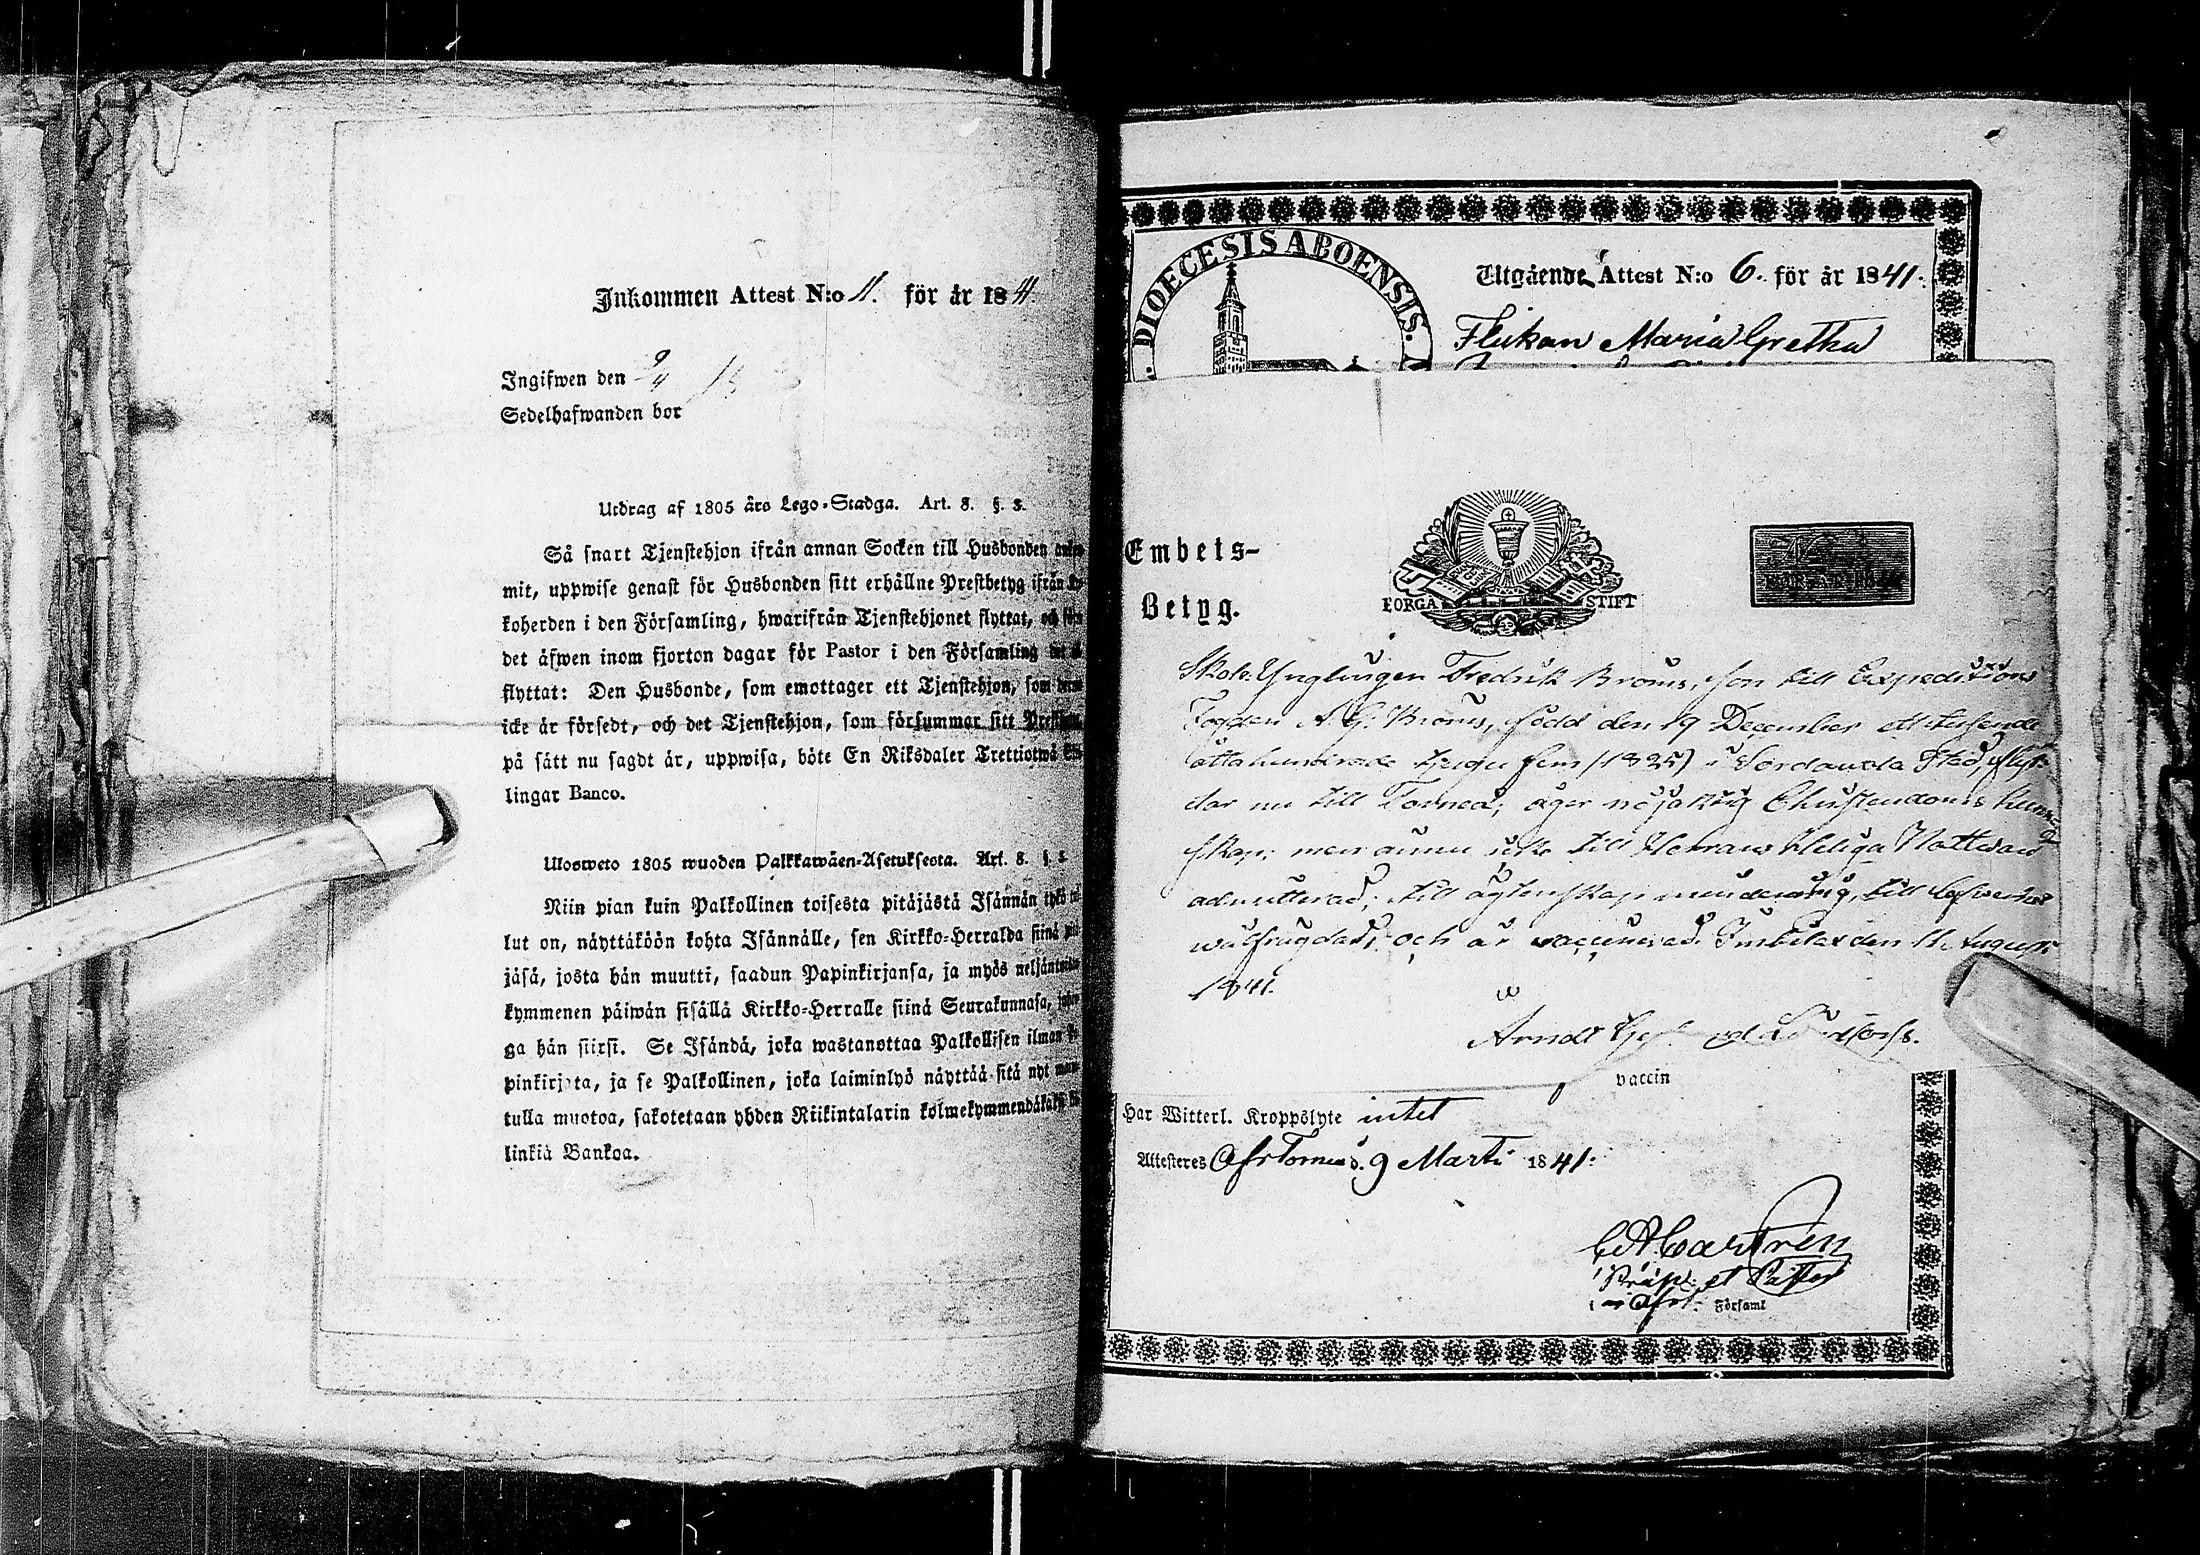 Inkommen Attest N:o 11. för år 1841.
Ingifwen den 9/4
Sedelhafwanden bor
Utdrag af 1805 års Lego-Stadga. Art. 8. §. 3.
Så snart Tjenstehjon ifrån annan Socken till Husbonden
mit, uppwise genast för Husbonden sitt erhållne Prestbetyg ifrån
koherden i den Församling, hwarifrån Tjenstehjonet flyttat, och
det äfwen inom fjorton dagar för Pastor i den Församling
flyttat: Den Husbonde, som emottager ett Tjenstehjon, som
icke är försedt, och det Tjenstehjon, som försummar sitt
på sätt nu sagdt är, uppwisa, böte En Riksdaler Trettiotwå
lingar Banco.
Ulosweto 1805 wuoden Palkkawäen-Asetuksesta. Art. 8. §. 3.
Niin pian kuin Palkollinen toisesta pitäjästä Isännän tykö
lut on, näyttäköön kohta Isännälle, sen Kirkko-Herralda siinä
jäsä, josta hän muutti, saadun Papinkirjansa, ja myös
kymmenen päiwän sisällä Kirkko-Herralle siinä Seurakunnasa,
ga hän siirsi. Se Isändä, joka wastanottaa Palkollisen ilman
pinkirjata, ja se Palkollinen, joka laiminlyö näyttää sitä nyt
tulla muotoa, sakotetaan yhden Riikintalarin kolmekymmendäkaksi
linkiä Bankoa.
DIOECESIS ABOENSIS.
Utgående Attest N:o 6. för år 1841.
Flickan Maria Gretha
Embets-
Betyg.
BORGÅ STIFT
Skole Ynglingen Fredrik Broms, son till Expeditions
Fogden A. G. Broms, född den 19 December ett tusende
åttahundrade tjugu fem (1825) i Sordavala Stad, flyt-
tar nu till Torneå; äger nöjaktig Christendoms kun-
skap; men ännu icke till Herrans Heliga Nattvard
admitterad; till ägtenskap minderårig, till lefvernet
wälfrägdad, och är vaccinerad. Imbilax den 11 Augusti
1841.
Arndt
vaccin
Har Witterl. Kroppslyte intet
Attesteres Öfr Torneå d. 9 Marti 1841.
C A Castrén
Präp: et Pastor
i Öfr. Församl